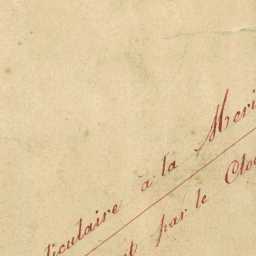 diculaire à la Meri
par le Cloc